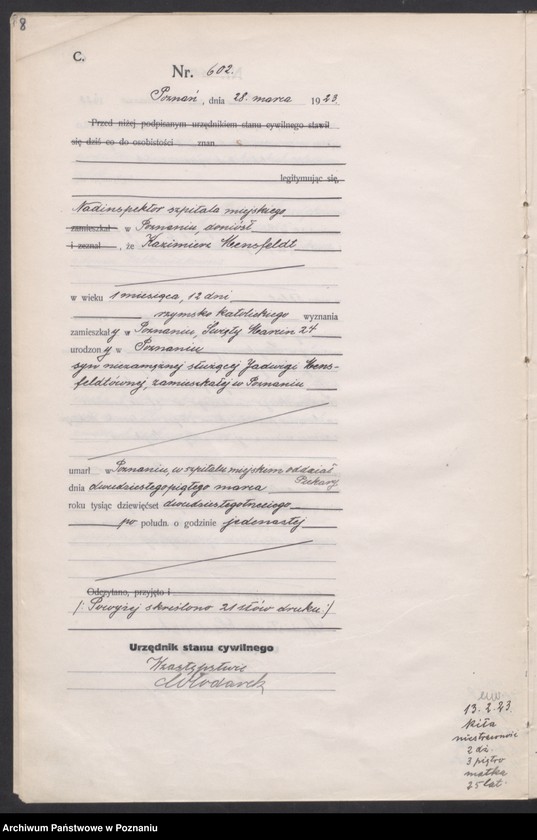 8
C.
Nr. 602.
Poznań, dnia 28. marca 1923
Przed niżej podpisanym urzędnikiem stanu cywilnego stawił
się dziś co do osobistości znan
legitymując się,
Nadinspektor szpitala miejskiego
zamieszkał w Poznaniu, doniósł
i zeznał, że Kazimierz Wensfeldt
w wieku 1 miesiąca, 12 dni
rzymsko katolickiego wyznania
zamieszkały w Poznaniu, Święty Marcin 24
urodzony w Poznaniu
syn niezamężnej służącej Jadwigi Wens-
feldtównej, zamieszkałej w Poznaniu
umarł w Poznaniu, w szpitalu miejskim oddział
Piekary
dnia dwudziestegopiątego marca
roku tysiąc dziewięćset dwudziestegotrzeciego
po połudn. o godzinie jedenastej
Odczytano, przyjęto i
/: Powyżej skreślono 21 słów druku :/
Urzędnik stanu cywilnego
W zastępstwie
Włodarek
13.2.23
kiła
2 dz.
3 piętro
matka
25 lat
Archiwum Państwowe w Poznaniu